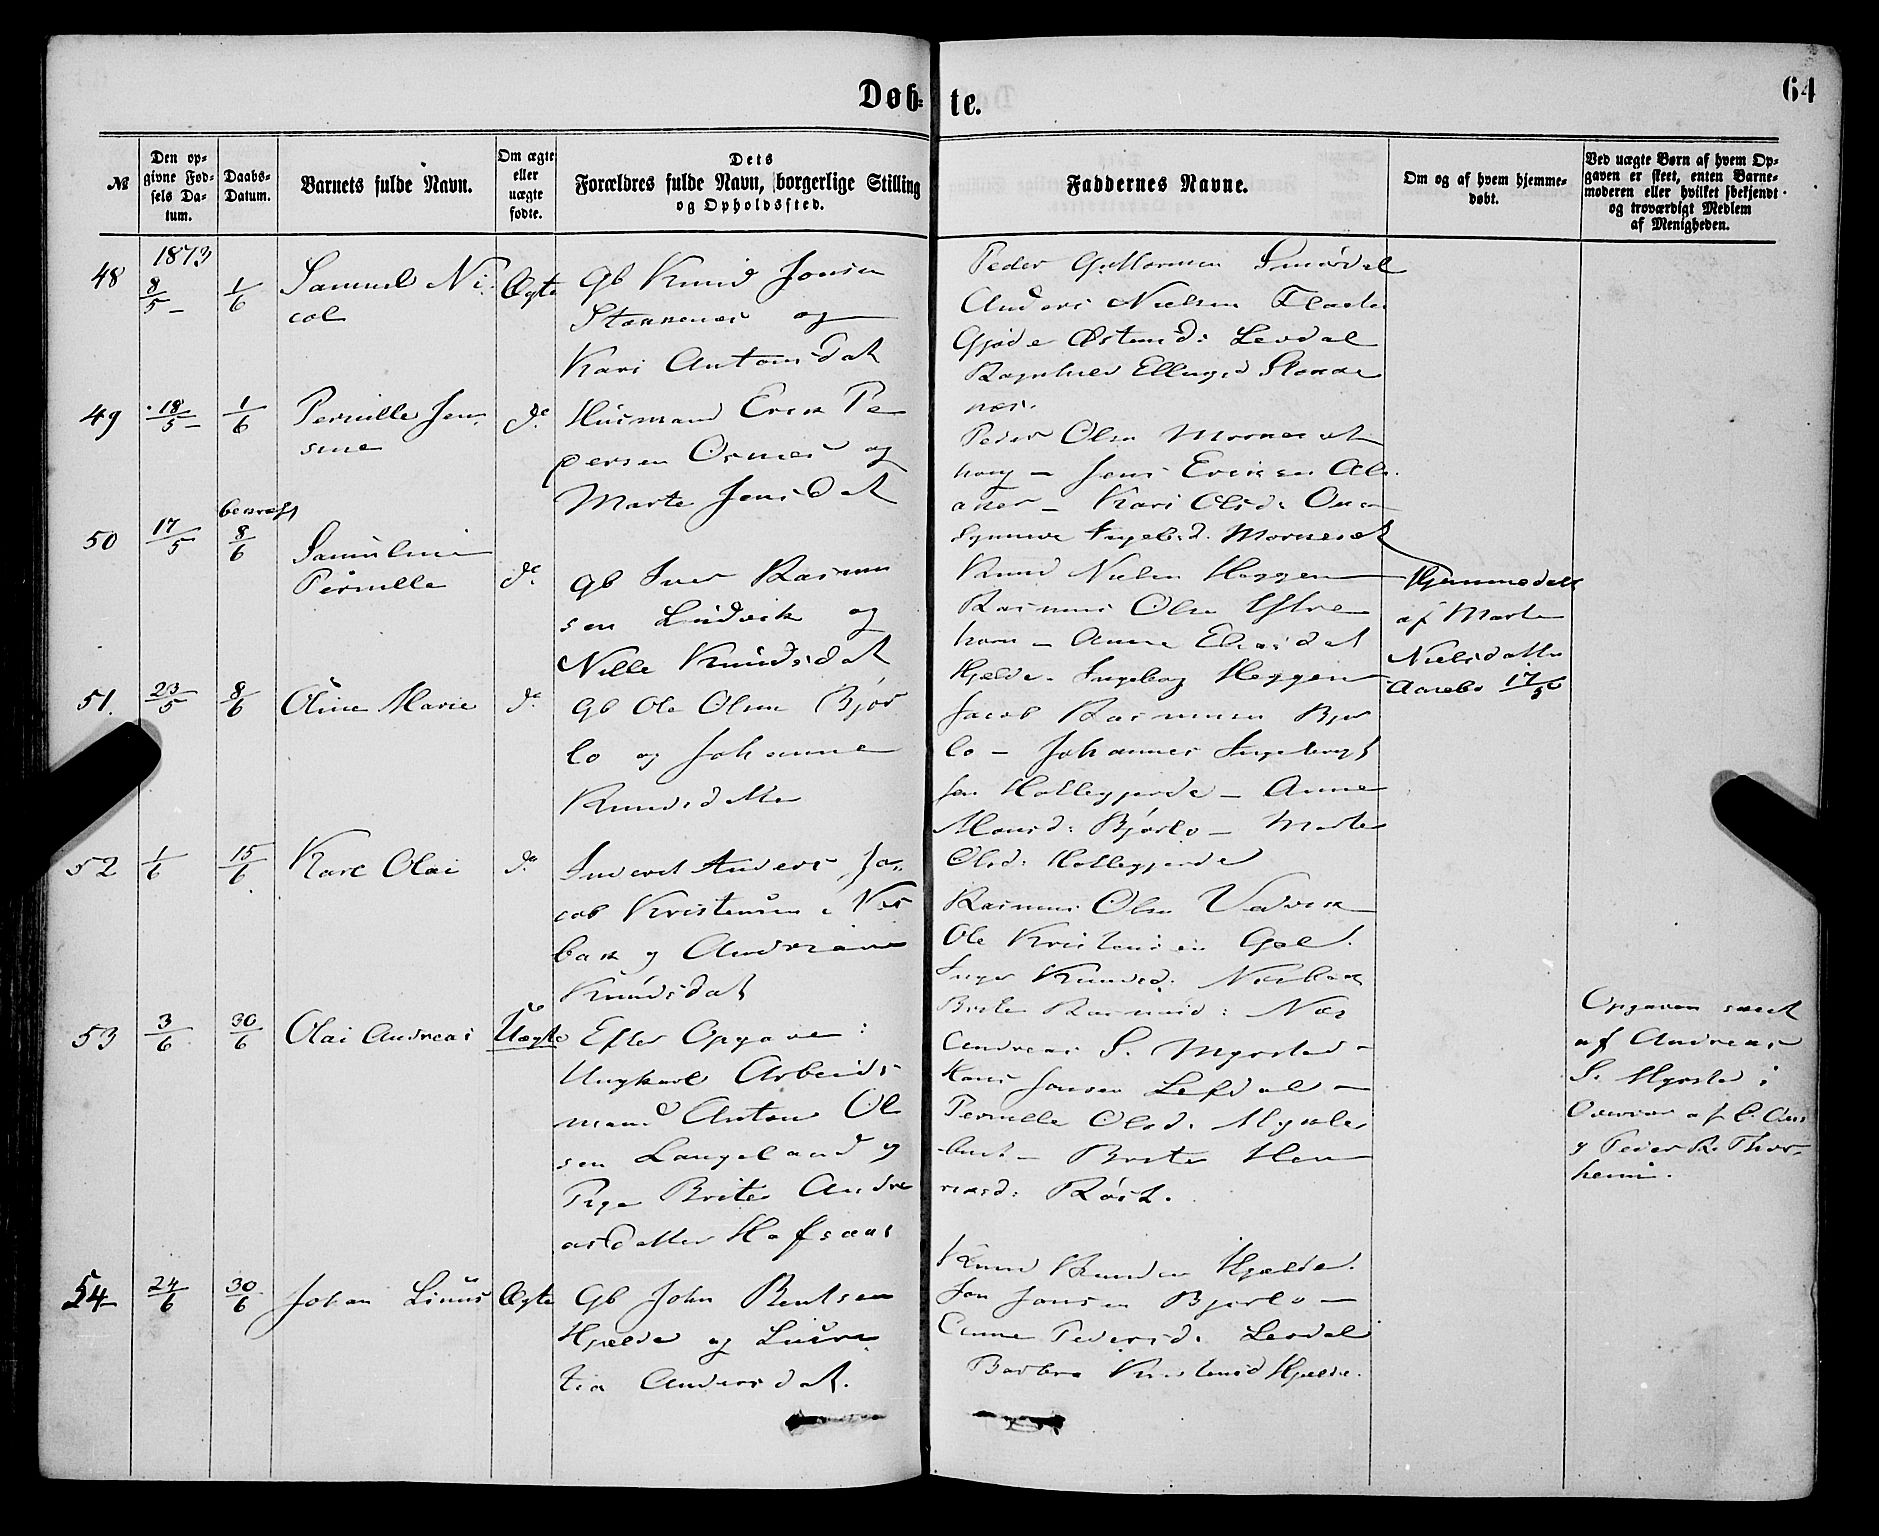 Døb-te.
64
№
Den op-
givne Fød-
sels Da-
tum.
Daabs-
Datum.
Barnets fulde Navn.
Om ægte
eller
uægte
fødte.
Dets
Forældres fulde Navn, borgerlige Stilling
og Opholdssted.
Faddernes Navne.
Om og af hvem hjemme-
døbt.
Ved uægte Børn af hvem Op-
gaven er skeet, enten Barne-
moderen eller hvilket bekjendt
og troværdigt Medlem
af Menigheden.
1873
48
8/5
1/6
Samuel Ni-
col
Ægte
Gb Knud Jonsen
Stokkenes og
Kari Antonsdat
Peder Guttormsen Smørdal
Anders Nielsen
Gjøde Østensd: Levdal
Ragnhild Ellingsd Stokke
nes.
49
18/5
1/6
Pernille Jen-
sine
do
Husmand Erik Pe
dersen Osnes og
Marte Jensdat
Peder Olsen Morkeset
haug - Jens Eriksen
aker - Kari Olsd:
Synneve Ingebd. Morkeset
50
17/5
bekræft
8/6
Samuline
Pernille
do
Gb Iver Rasmus
sen Ludvik og
Nille Knudsdat
Knud Nielsen Heggen
Rasmus Olsen Ystre
horn - Anne Eliasdat
Hjelde - Ingeborg Heggen
Hjemmedøbt
af Marte
Nielsdatter
Aarebro 17/5
51.
23/5
8/6
Oline Marie
do
Gb Ole Olsen Bjør
lo og Johanne
Knudsdatter
Jacob Rasmusen Bjør
lo - Johannes Ingebrigt
sen Hollegjerde - Anne
Monsd: Bjørlo - Marte
Olsd: Hollegjerde
52
1/6
15/6
Karl Olai
do
Inderst Anders Ja-
cob Kristensen i Nes
bak og Andriane
Knudsdat
Rasmus Olsen Vedvik
Ole Kristensen
Inger Knudsd. Nesbak
Brite Rasmusd: Nes
53
3/6
30/6
Olai Andreas
Uægte
Efter Opgave:
Ungkarl Arbeids-
mand Anton Ol
sen Langeland og
Pige Brite Andre
asdatter Hafsaas
Andreas S. Myrstad -
Hans Jonsen Lefdal -
Pernille Olsd. Mykle
bust - Brite Hen
riksd: Røset.
Opgaven skeet
af Andreas
S. Myrstad i
Overvær af C. Aas
og Peder R. Thor-
heim.
54
24/6
30/6
Johan Linus
Ægte
Gb John Bentsen
Hjelde og Lucre
tia Andersdat.
Knud Knudsen Hjelde.
Jon Jonsen Bjørlo -
Anne Pedersd. Levdal
Barbra Kristensd Hjelde.